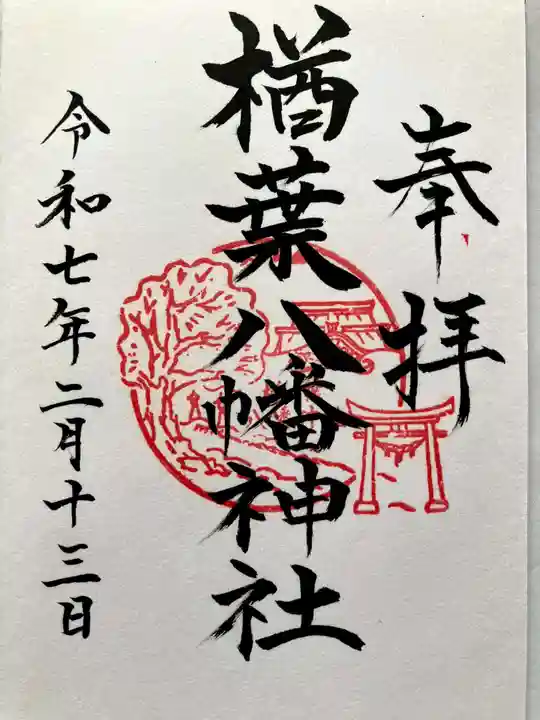 奉拝
楢葉八幡神社
令和七年二月十三日